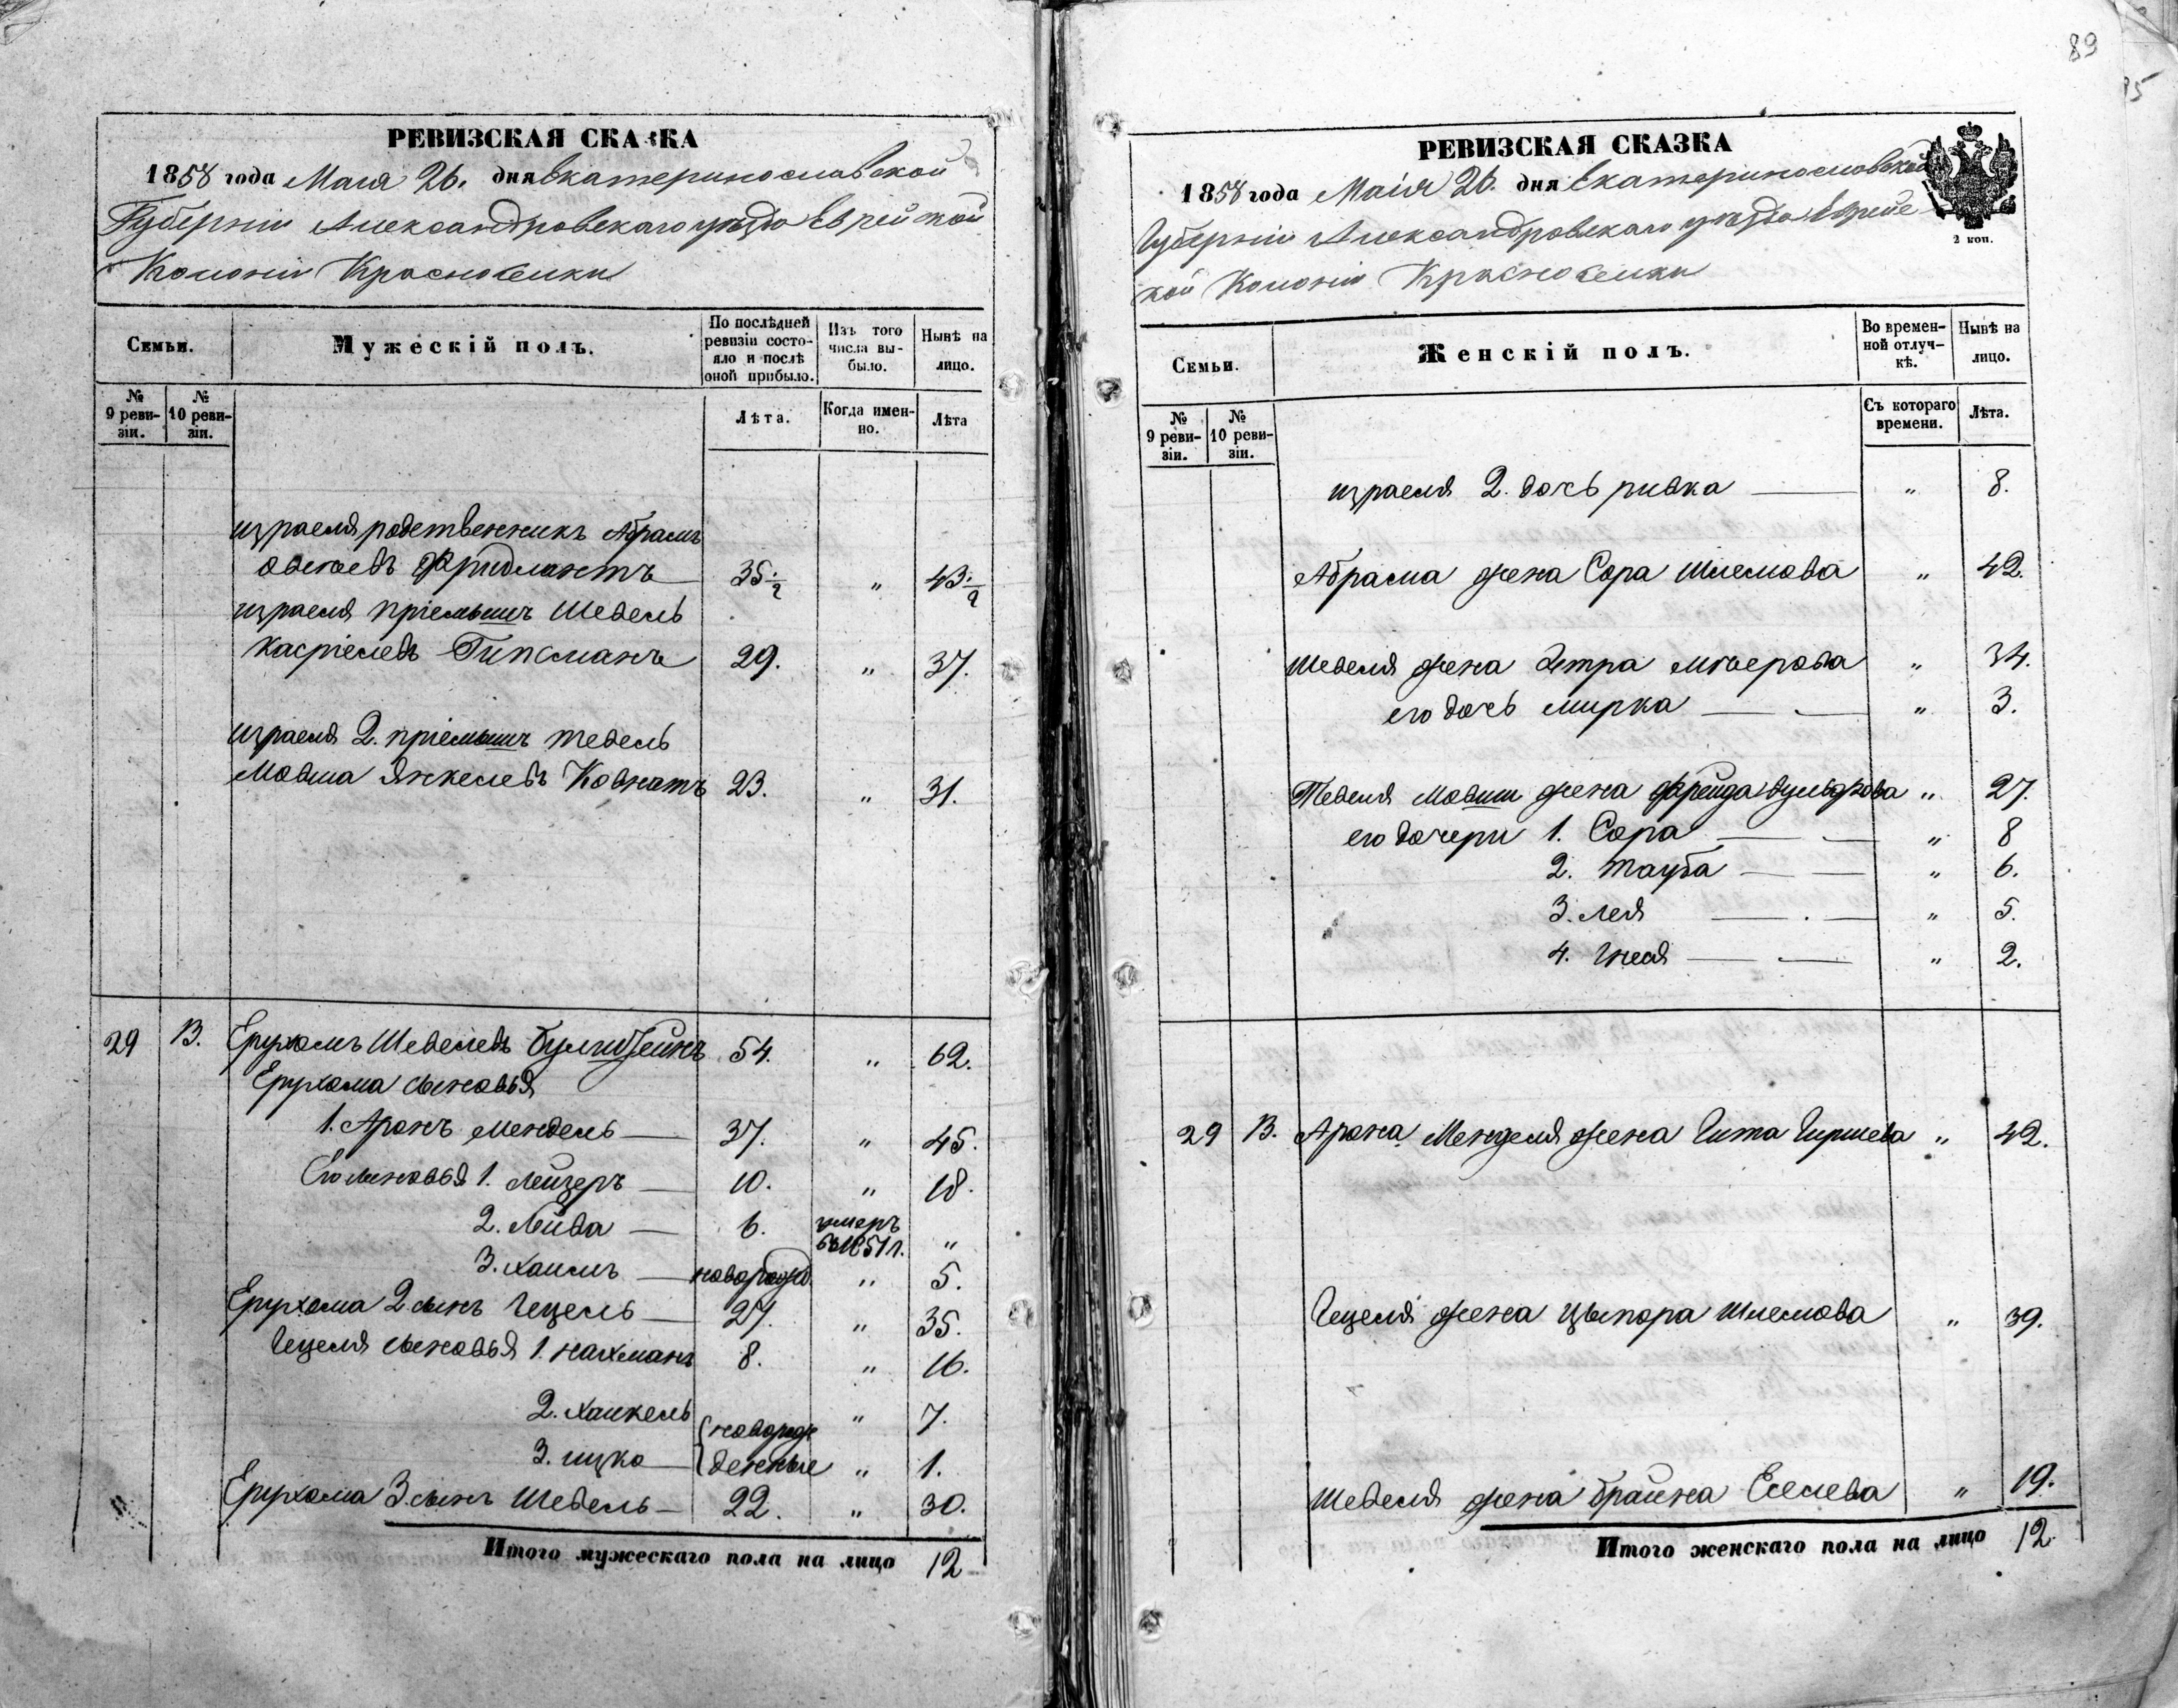 89
РЕВИЗСКАЯ СКАЗКА
1858 года Мая 26. дня Екатеринославской
Губерніи Александровскаго уѣзда Еврейской
Колоніи Красноселки
Семьи.
Мужескій полъ.
По послѣдней ревизіи состояло и послѣ оной прибыло.
Изъ того числа выбыло.
Нынѣ на лицо.
№ 9 ревизіи.
№ 10 ревизіи.
Лѣта.
Когда именно.
Лѣта
израеля родственникъ Абрамъ
Фридлантъ 35 1/2 " 43 1/2
израеля пріемышъ Шевель
Касріелевъ Гипсманъ 29. " 37.
израеля 2. пріемышъ тевель
Мовша Янкелевъ Ковнатъ 23. " 31.
29 13. Ерухомъ Шевелевъ 54. " 62.
Ерухома сыновья
1. Аронъ Мендель — 37. " 45.
Его сыновья 1. Лейзеръ — 10. " 18.
2. Лейва — 6. умеръ въ 1851 г. "
3. хаимъ — новорожд. " 5.
Ерухома 2 сынъ Гецель — 27. " 35.
Гецеля сыновья 1. нахманъ 8. " 16.
2. хаикель новорож " 7.
3. ицко — денные " 1.
Ерухома 3. сынъ Шевель — 22. " 30.
Итого мужескаго пола на лицо 12
РЕВИЗСКАЯ СКАЗКА
1858 года Маія 26. дня Екатеринославской
Губерніи Александровскаго уѣзда Еврейс
кой Колоніи Красноселки
2 коп.
Семьи.
Женскій полъ.
Во временной отлучкѣ.
Нынѣ на лицо.
№ 9 ревизіи.
№ 10 ревизіи.
Съ котораго времени.
Лѣта.
израеля 2. дочь ривка — " 8.
Абрама жена Сора Шлемова " 42.
Шевеля жена Этра Меерова " 34.
его дочь мирка — — " 3.
Тевеля Мовши жена Фрейда Вульфова " 27.
его дочери 1. Сора — — " 8
2. Тауба — — " 6.
3. Лея — — " 5.
4. Гнеся — — " 2.
29 13. Арона Менделя жена Гита Гиршева " 42.
Гецеля жена Цыпора Шлемова " 39.
Шевеля жена браина Еселева " 19.
Итого женскаго пола на лицо 12